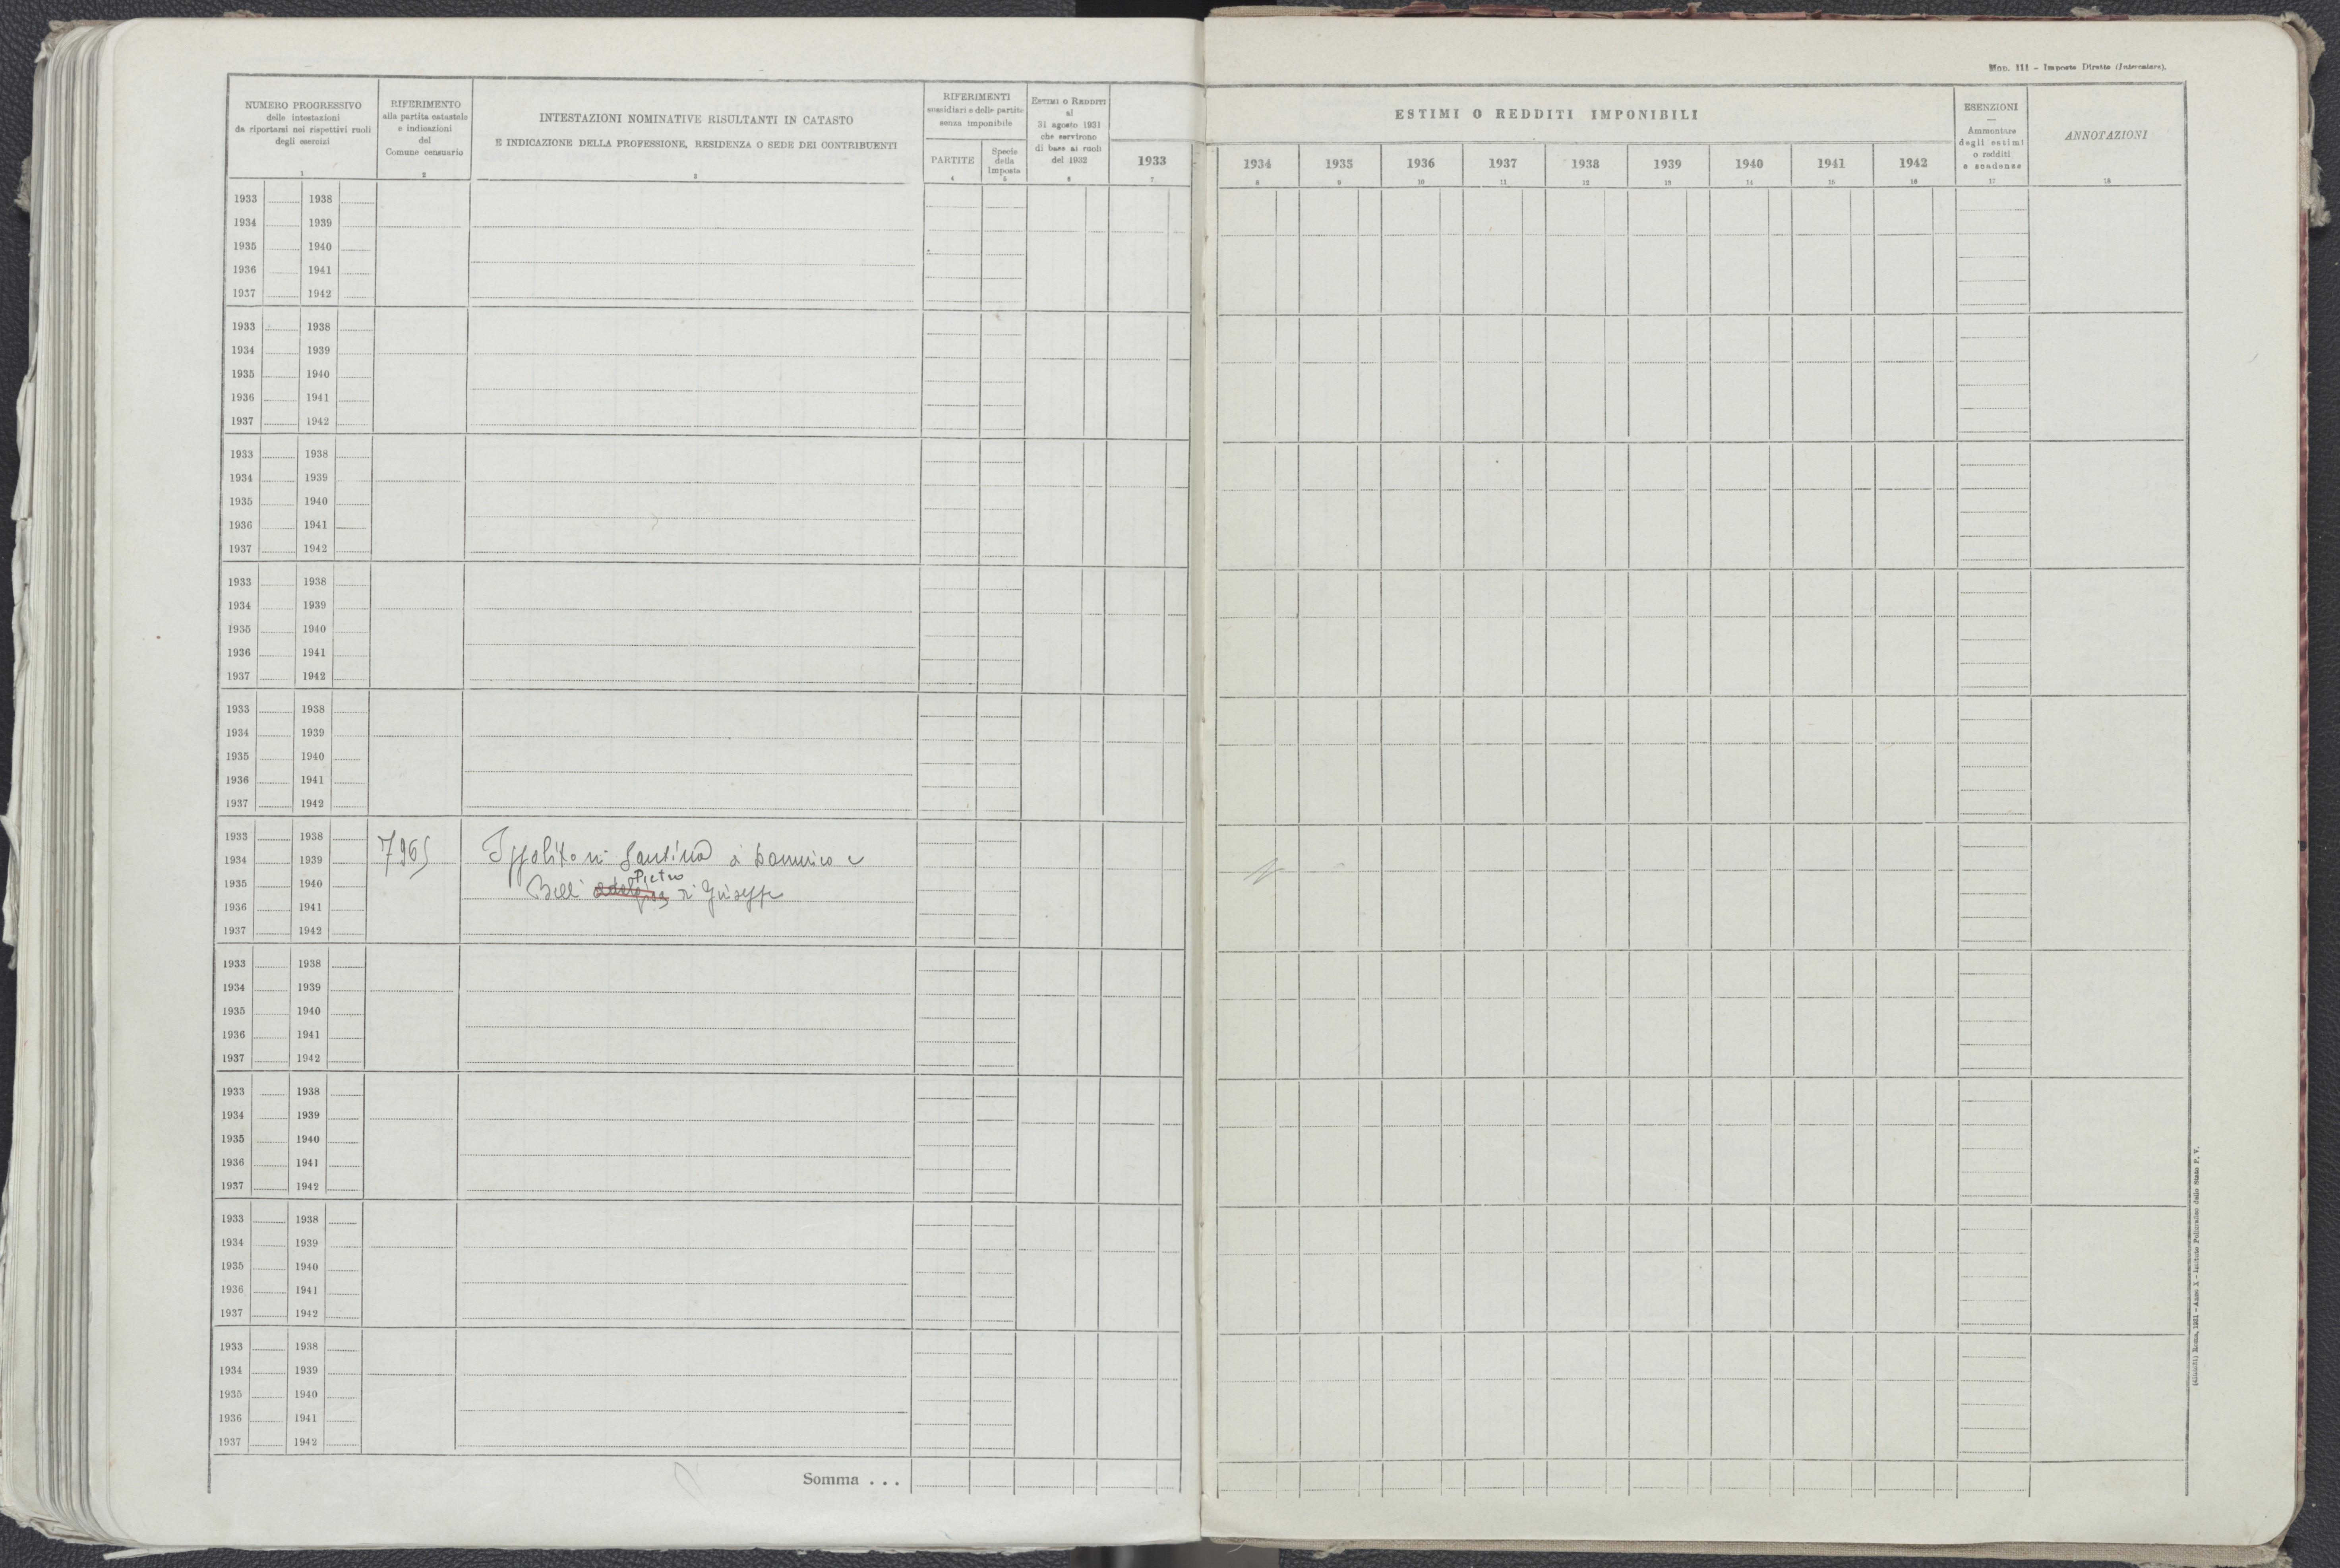 Mod. 111 - Imposte Dirette (Intercalare).
NUMERO PROGRESSIVO
delle intestazioni
da riportarsi nei rispettivi ruoli
degli esercizi
1
RIFERIMENTO
alla partita catastale
e indicazioni
del
Comune censuario
2
INTESTAZIONI NOMINATIVE RISULTANTI IN CATASTO
E INDICAZIONE DELLA PROFESSIONE, RESIDENZA O SEDE DEI CONTRIBUENTI
3
RIFERIMENTI
sussidiari e delle partite
senza imponibile
PARTITE
4
Specie
della
Imposta
5
ESTIMI O REDDITI
al
31 agosto 1931
che servirono
di base ai ruoli
del 1932
6
ESTIMI O REDDITI IMPONIBILI
1933 1934 1935 1936 1937 1938 1939 1940 1941 1942
7 8 9 10 11 12 13 14 15 16
ESENZIONI
—
Ammontare
degli estimi
o redditi
e scadenze
17
ANNOTAZIONI
18
1933 1938
1934 1939
1935 1940
1936 1941
1937 1942
1933 1938
1934 1939
1935 1940
1936 1941
1937 1942
1933 1938
1934 1939
1935 1940
1936 1941
1937 1942
1933 1938
1934 1939
1935 1940
1936 1941
1937 1942
1933 1938
1934 1939
1935 1940
1936 1941
1937 1942
1933 1938
1934 1939 7965 Ippolitoni Santina di Domenico e
Pietro
1935 1940 Belli di Giuseppe
1936 1941
1937 1942
1933 1938
1934 1939
1935 1940
1936 1941
1937 1942
1933 1938
1934 1939
1935 1940
1936 1941
1937 1942
1933 1938
1934 1939
1935 1940
1936 1941
1937 1942
1933 1938
1934 1939
1935 1940
1936 1941
1937 1942
Somma . . .
Roma, 1931 - Anno X - Istituto Poligrafico dello Stato P. V.